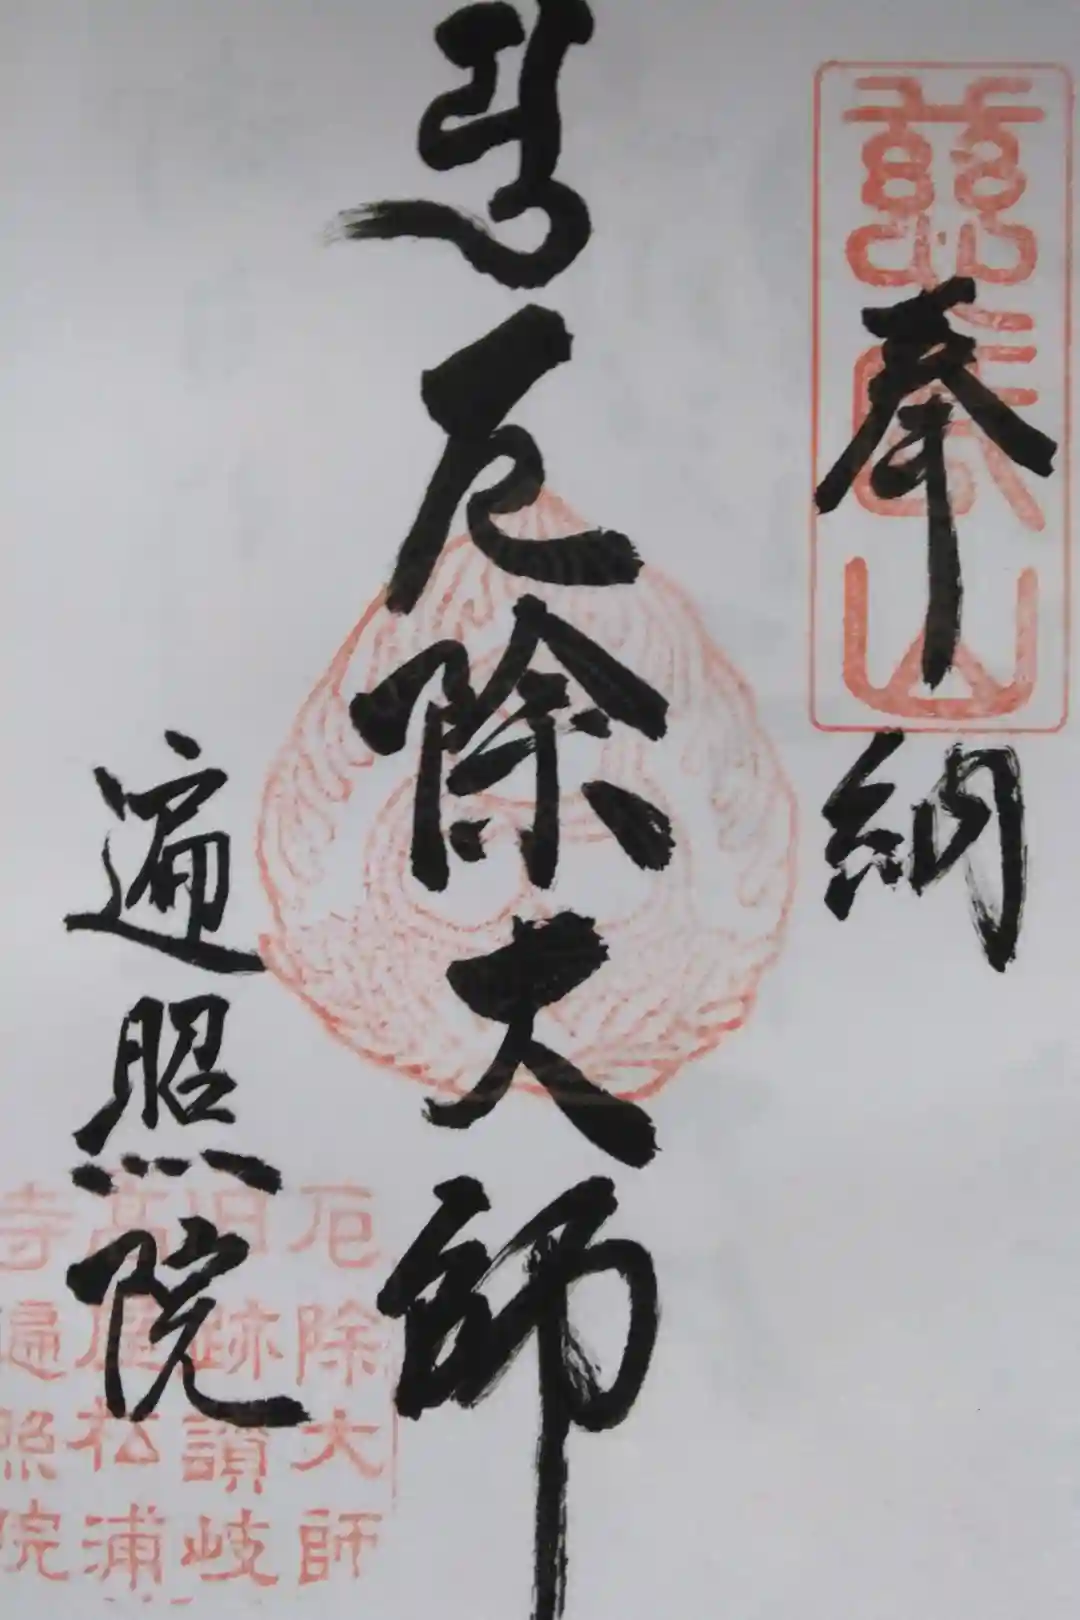 奉納
厄除大師
遍照院
厄除大師
旧跡讃岐
高屋松浦
寺遍照院